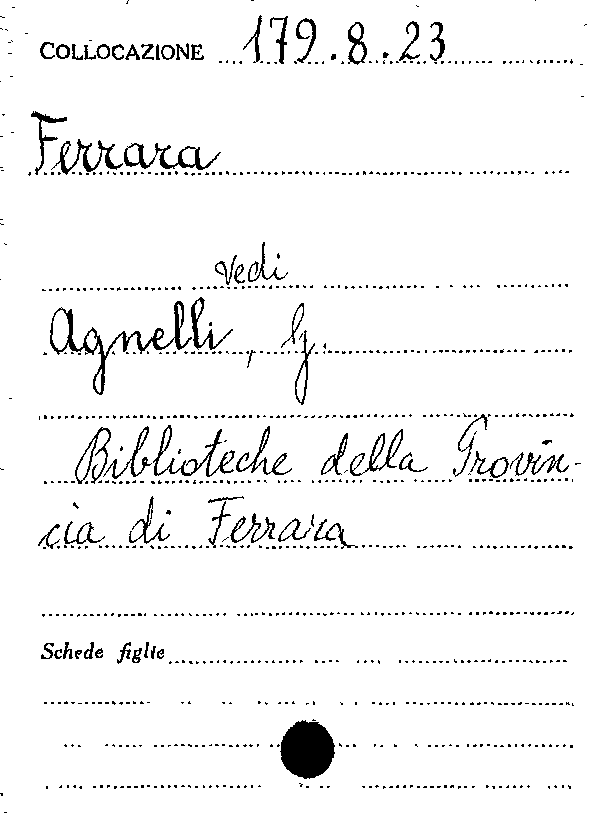 COLLOCAZIONE 179.8.23
Ferrara
vedi
Agnelli, G.
Biblioteche della Provin-
cia di Ferrara
Schede figlie